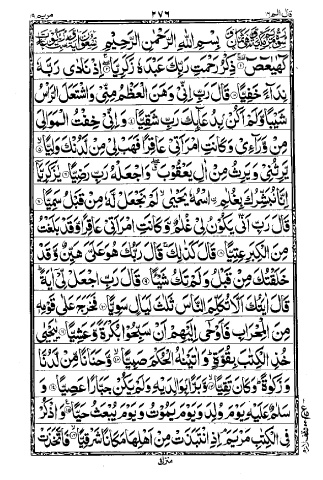 قال الم ١٦ ٢٧٦ مريم ١٩
بِسْمِ اللهِ الرَّحْمٰنِ الرَّحِيْمِ
كٓهٰيٰعٓصٓ ذِكْرُ رَحْمَتِ رَبِّكَ عَبْدَهٗ زَكَرِيَّا اِذْ نَادٰى رَبَّهٗ
نِدَآءً خَفِيًّا قَالَ رَبِّ اِنِّيْ وَهَنَ الْعَظْمُ مِنِّيْ وَاشْتَعَلَ الرَّاْسُ
شَيْبًا وَّلَمْ اَكُنْۢ بِدُعَآئِكَ رَبِّ شَقِيًّا وَاِنِّيْ خِفْتُ الْمَوَالِيَ
مِنْ وَّرَآءِيْ وَكَانَتِ امْرَاَتِيْ عَاقِرًا فَهَبْ لِيْ مِنْ لَّدُنْكَ وَلِيًّا
يَّرِثُنِيْ وَيَرِثُ مِنْ اٰلِ يَعْقُوْبَ وَاجْعَلْهُ رَبِّ رَضِيًّا يٰزَكَرِيَّآ
اِنَّا نُبَشِّرُكَ بِغُلٰمِ ۨاسْمُهٗ يَحْيٰى لَمْ نَجْعَلْ لَّهٗ مِنْ قَبْلُ سَمِيًّا
قَالَ رَبِّ اَنّٰى يَكُوْنُ لِيْ غُلٰمٌ وَّكَانَتِ امْرَاَتِيْ عَاقِرًا وَّقَدْ بَلَغْتُ
مِنَ الْكِبَرِ عِتِيًّا قَالَ كَذٰلِكَ قَالَ رَبُّكَ هُوَ عَلَيَّ هَيِّنٌ وَّقَدْ
خَلَقْتُكَ مِنْ قَبْلُ وَلَمْ تَكُ شَيْئًا قَالَ رَبِّ اجْعَلْ لِّيْٓ اٰيَةً
قَالَ اٰيَتُكَ اَلَّا تُكَلِّمَ النَّاسَ ثَلٰثَ لَيَالٍ سَوِيًّا فَخَرَجَ عَلٰى قَوْمِهٖ
مِنَ الْمِحْرَابِ فَاَوْحٰٓى اِلَيْهِمْ اَنْ سَبِّحُوْا بُكْرَةً وَّعَشِيًّا يٰيَحْيٰى
خُذِ الْكِتٰبَ بِقُوَّةٍ وَاٰتَيْنٰهُ الْحُكْمَ صَبِيًّا وَّحَنَانًا مِّنْ لَّدُنَّا
وَزَكٰوةً وَكَانَ تَقِيًّا وَّبَرًّاۢ بِوَالِدَيْهِ وَلَمْ يَكُنْ جَبَّارًا عَصِيًّا وَ
سَلٰمٌ عَلَيْهِ يَوْمَ وُلِدَ وَيَوْمَ يَمُوْتُ وَيَوْمَ يُبْعَثُ حَيًّا وَاذْكُرْ
فِي الْكِتٰبِ مَرْيَمَ اِذِ انْتَبَذَتْ مِنْ اَهْلِهَا مَكَانًا شَرْقِيًّا فَاتَّخَذَتْ
منزل٤